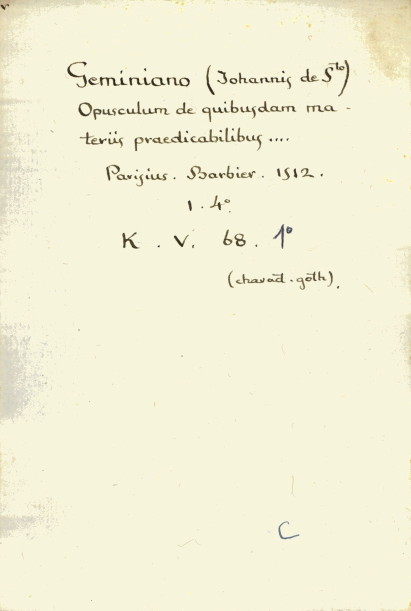 Geminiano (Johannis de Sto)
Opusculum de quibusdam ma-
teriis praedicabilibus ....
Parisius. Barbier. 1512.
1. 4°.
K. V. 68. 1°
(charad. goth).
C